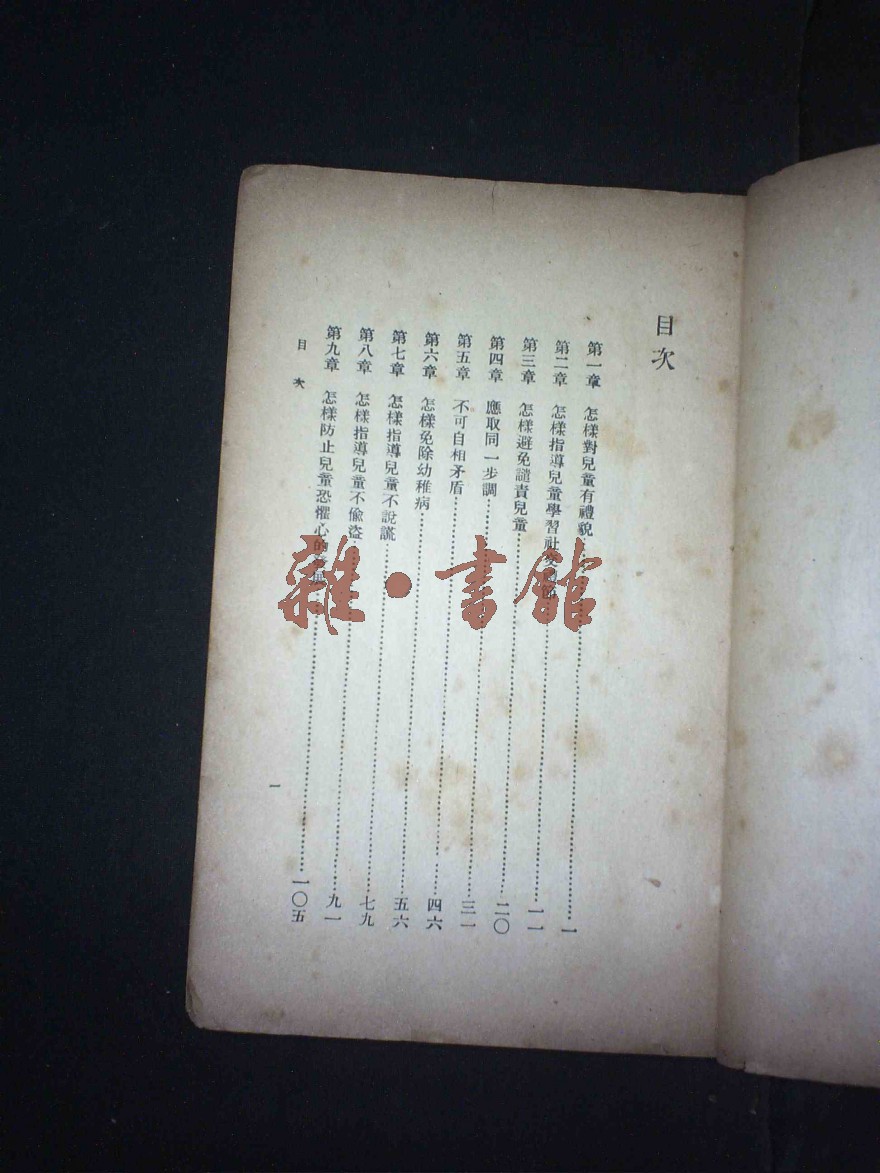 目次
第一章 怎樣對兒童有禮貌……一
第二章 怎樣指導兒童學習社交……一一
第三章 怎樣避免譴責兒童……二〇
第四章 應取同一步調……三一
第五章 不可自相矛盾……四六
第六章 怎樣免除幼稚病……五六
第七章 怎樣指導兒童不說謊……七九
第八章 怎樣指導兒童不偷盜……九一
第九章 怎樣防止兒童恐懼心的……一〇五
目次
一
雜·書館